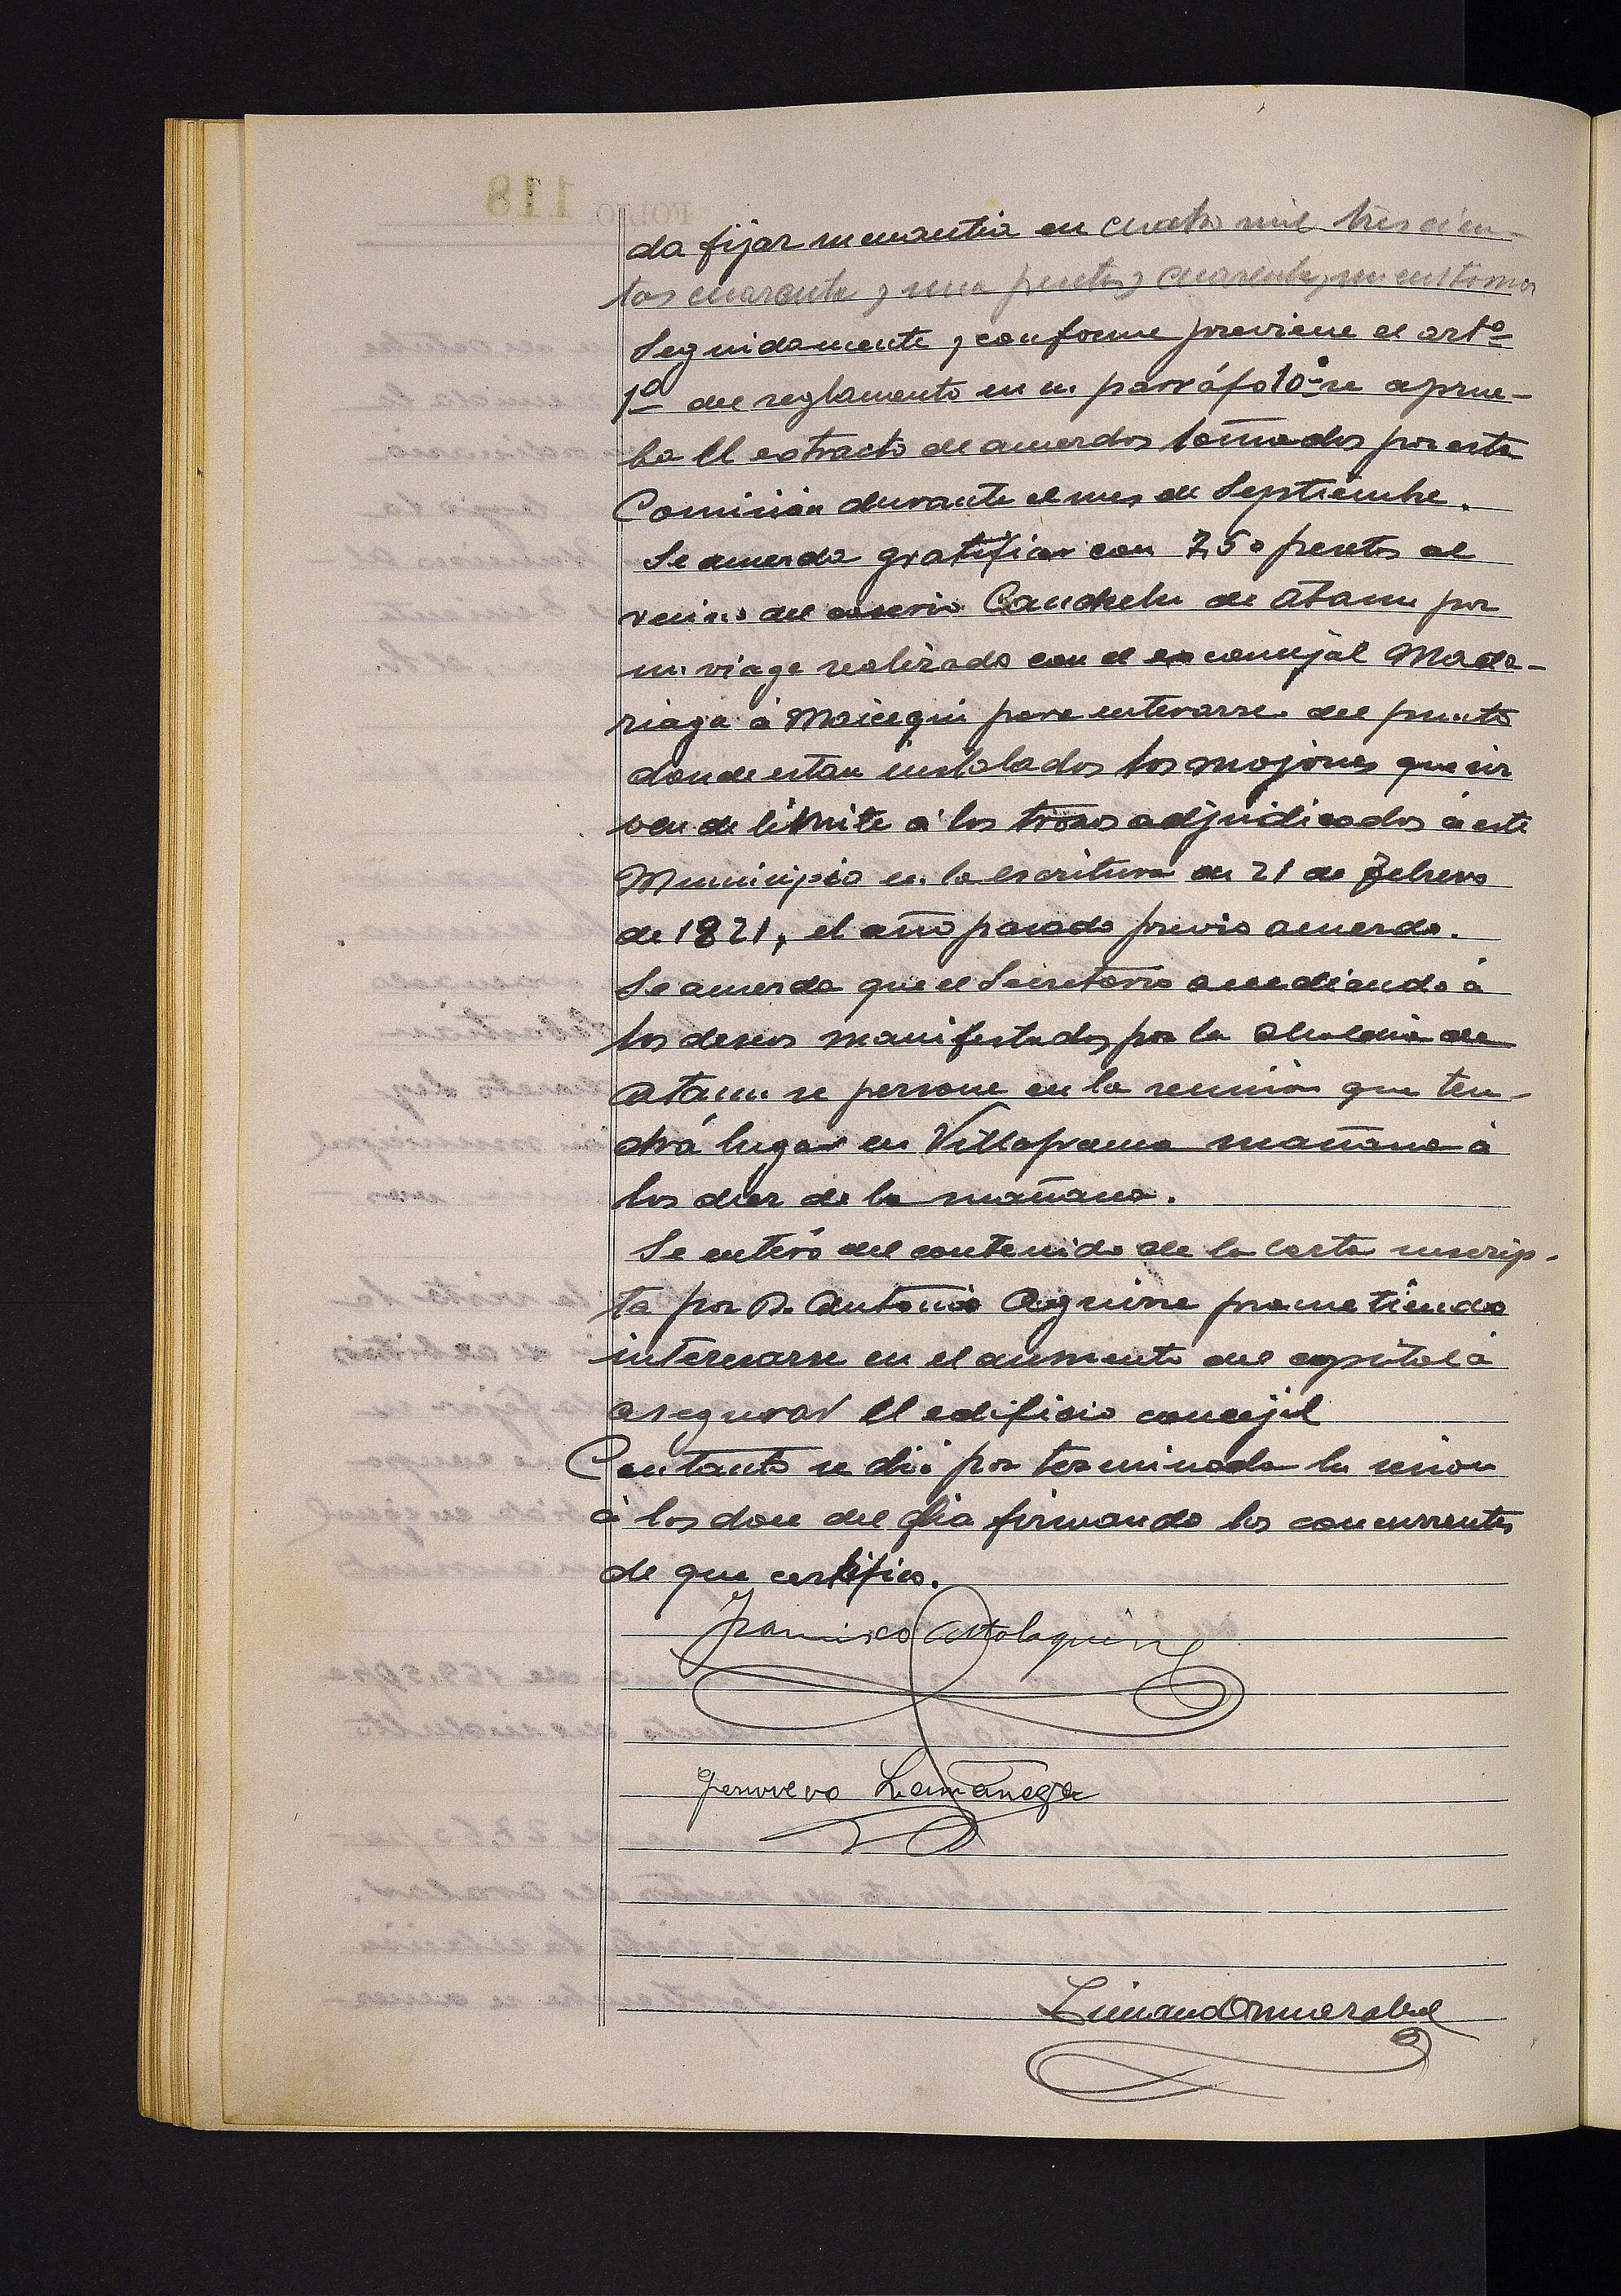 da fijar su cuantia en cuatro mil trescien-
tas cuarenta y una pesetas cuarenta y un centimos
Seguidamente y conforme previene el artº
1º del reglamento en su parráfo 10º se aprue-
ba el extracto de acuerdos tomados por esta
Comisión durante el mes de Septiembre.
Se acuerda gratificar con 7,50 pesetas al
vecino del caserio Canchelu de Ataun por
su viage realizado con el ex concejal Mada-
riaga á Maicegui para enterarse del punto
donde estan instalados los mojones que sir
ven de limite á los trozos adjudicados á este
Municipio en la escritura de 21 de Febrero
de 1821, el año pasado previo acuerdo.
Se acuerda que el Secretario accediendo á
los deseos manifestados por la Alcaldia de
Ataun se persone en la reunion que ten-
drá lugar en Villafranca mañana á
las diez de la mañana.
Se enteró del contenido de la carta suscrip-
ta por D. Antonio Aguirre prometiendo
interesarse en el aumento del capital á
asegurar el edificio concejil
Con tanto se dió por terminada la sesion
á las doce del dia firmando los concurrentes
de que certifico.
Francisco Artolaguirre
Genovevo Lamariega